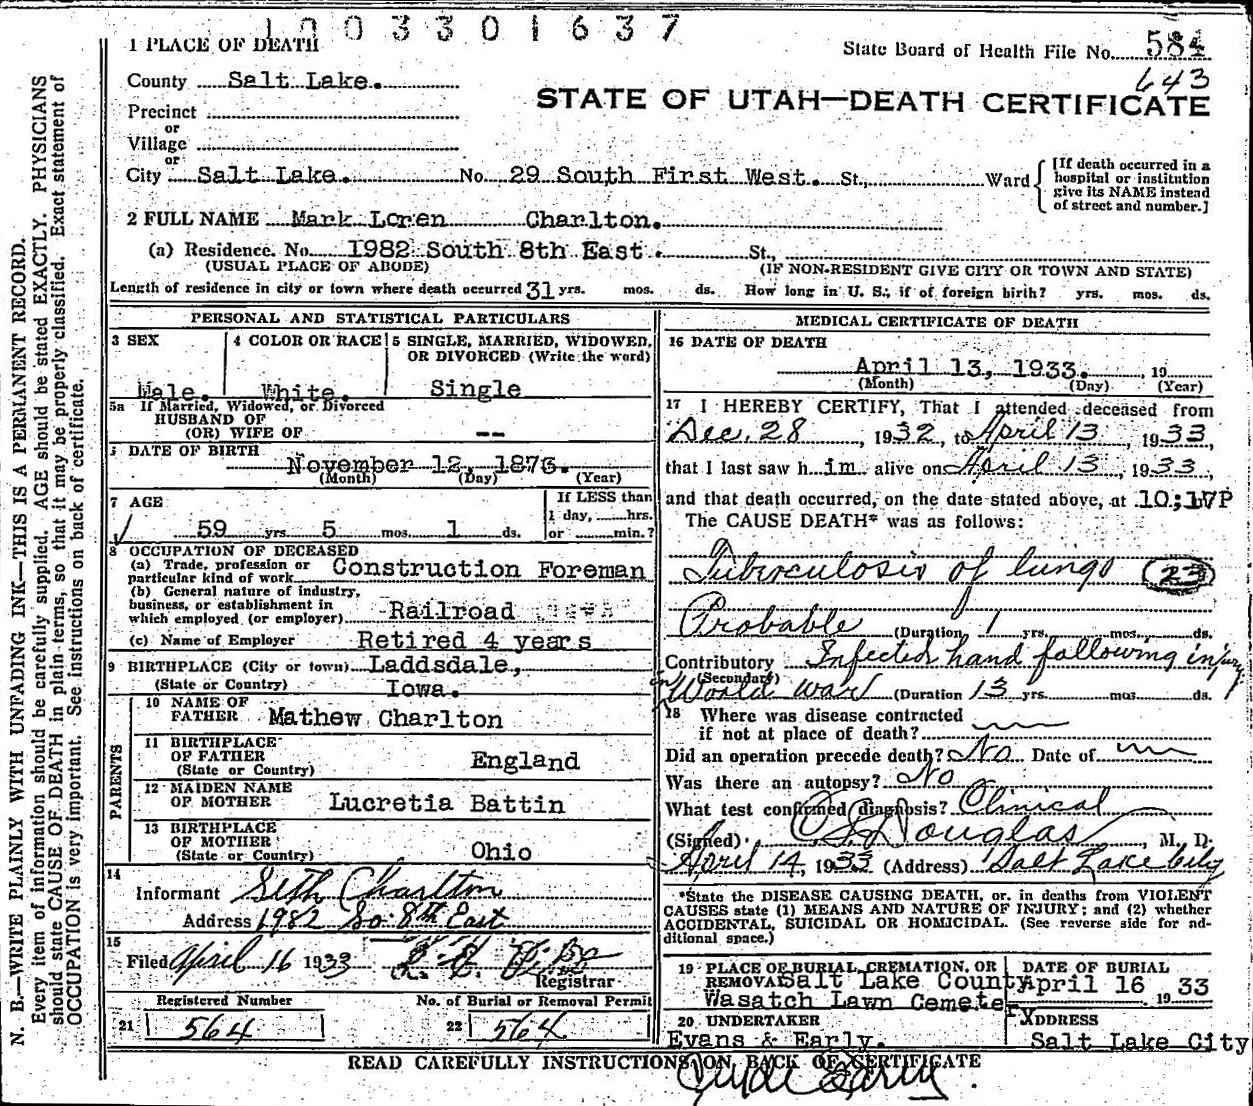 1003301637
1 PLACE OF DEATH
State Board of Health File No. 584
643
County Salt Lake.
STATE OF UTAH—DEATH CERTIFICATE
Precinct
or
Village
or
City Salt Lake. No. 29 South First West. St., Ward
[If death occurred in a hospital or institution give its NAME instead of street and number.]
2 FULL NAME Mark Loren Charlton.
(a) Residence. No. 1982 South 8th East. St.,
(USUAL PLACE OF ABODE) (IF NON-RESIDENT GIVE CITY OR TOWN AND STATE)
Length of residence in city or town where death occurred 31 yrs. mos. ds. How long in U. S.; if of foreign birth? yrs. mos. ds.
PERSONAL AND STATISTICAL PARTICULARS
3 SEX
Male.
4 COLOR OR RACE
White.
5 SINGLE, MARRIED, WIDOWED,
OR DIVORCED (Write the word)
Single
5a If Married, Widowed, or Divorced
HUSBAND OF
(OR) WIFE OF --
DATE OF BIRTH
November 12, 1873.
(Month) (Day) (Year)
7 AGE
59 yrs 5 mos. 1 ds.
If LESS than
1 day, hrs.
or min.?
8 OCCUPATION OF DECEASED
(a) Trade, profession or
particular kind of work Construction Foreman
(b) General nature of industry,
business, or establishment in
which employed (or employer) Railroad
(c) Name of Employer Retired 4 years
9 BIRTHPLACE (City or town) Laddsdale,
(State or Country) Iowa.
PARENTS
10 NAME OF
FATHER Mathew Charlton
11 BIRTHPLACE
OF FATHER
(State or Country) England
12 MAIDEN NAME
OF MOTHER Lucretia Battin
13 BIRTHPLACE
OF MOTHER
(State or Country) Ohio
14
Informant Seth Charlton
Address 1982 So 8th East
15
Filed April 16 1933
Registrar
Registered Number
21 564
No. of Burial or Removal Permit
22 564
MEDICAL CERTIFICATE OF DEATH
16 DATE OF DEATH
April 13, 1933. , 19
(Month) (Day) (Year)
17 I HEREBY CERTIFY, That I attended deceased from
Dec. 28, 1932, to April 13, 1933,
that I last saw h im alive on April 13, 1933,
and that death occurred, on the date stated above, at 10:17P
The CAUSE DEATH* was as follows:
Tuberculosis of lungs 23
Probable (Duration 1 yrs. mos. ds.
Contributory Infected hand following injury
(Secondary)
in World war (Duration 13 yrs mos ds.
18 Where was disease contracted
if not at place of death?
Did an operation precede death? No Date of
Was there an autopsy? No
What test confirmed diagnosis? Clinical
(Signed) Douglas, M. D.
April 14, 1933 (Address) Salt Lake City
*State the DISEASE CAUSING DEATH, or. in deaths from VIOLENT
CAUSES state (1) MEANS AND NATURE OF INJURY; and (2) whether
ACCIDENTAL, SUICIDAL OR HOMICIDAL. (See reverse side for ad-
ditional space.)
19 PLACE OF BURIAL, CREMATION, OR
REMOVAL Salt Lake County
Wasatch Lawn Cemetery
DATE OF BURIAL
April 16 1933
20 UNDERTAKER
Evans & Early.
ADDRESS
Salt Lake City
READ CAREFULLY INSTRUCTIONS ON BACK OF CERTIFICATE
N. B.—WRITE PLAINLY WITH UNFADING INK—THIS IS A PERMANENT RECORD.
Every item of information should be carefully supplied. AGE should be stated EXACTLY. PHYSICIANS
should state CAUSE OF DEATH in plain terms, so that it may be properly classified. Exact statement of
OCCUPATION is very important. See instructions on back of certificate.